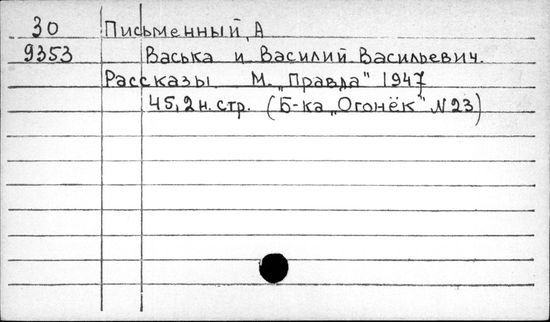 30 Письменный, А
9353 Васька и Василий Васильевич.
Рассказы М. „Правда" 1947
45,2 н. стр. (Б-ка „Огонёк" N 23)